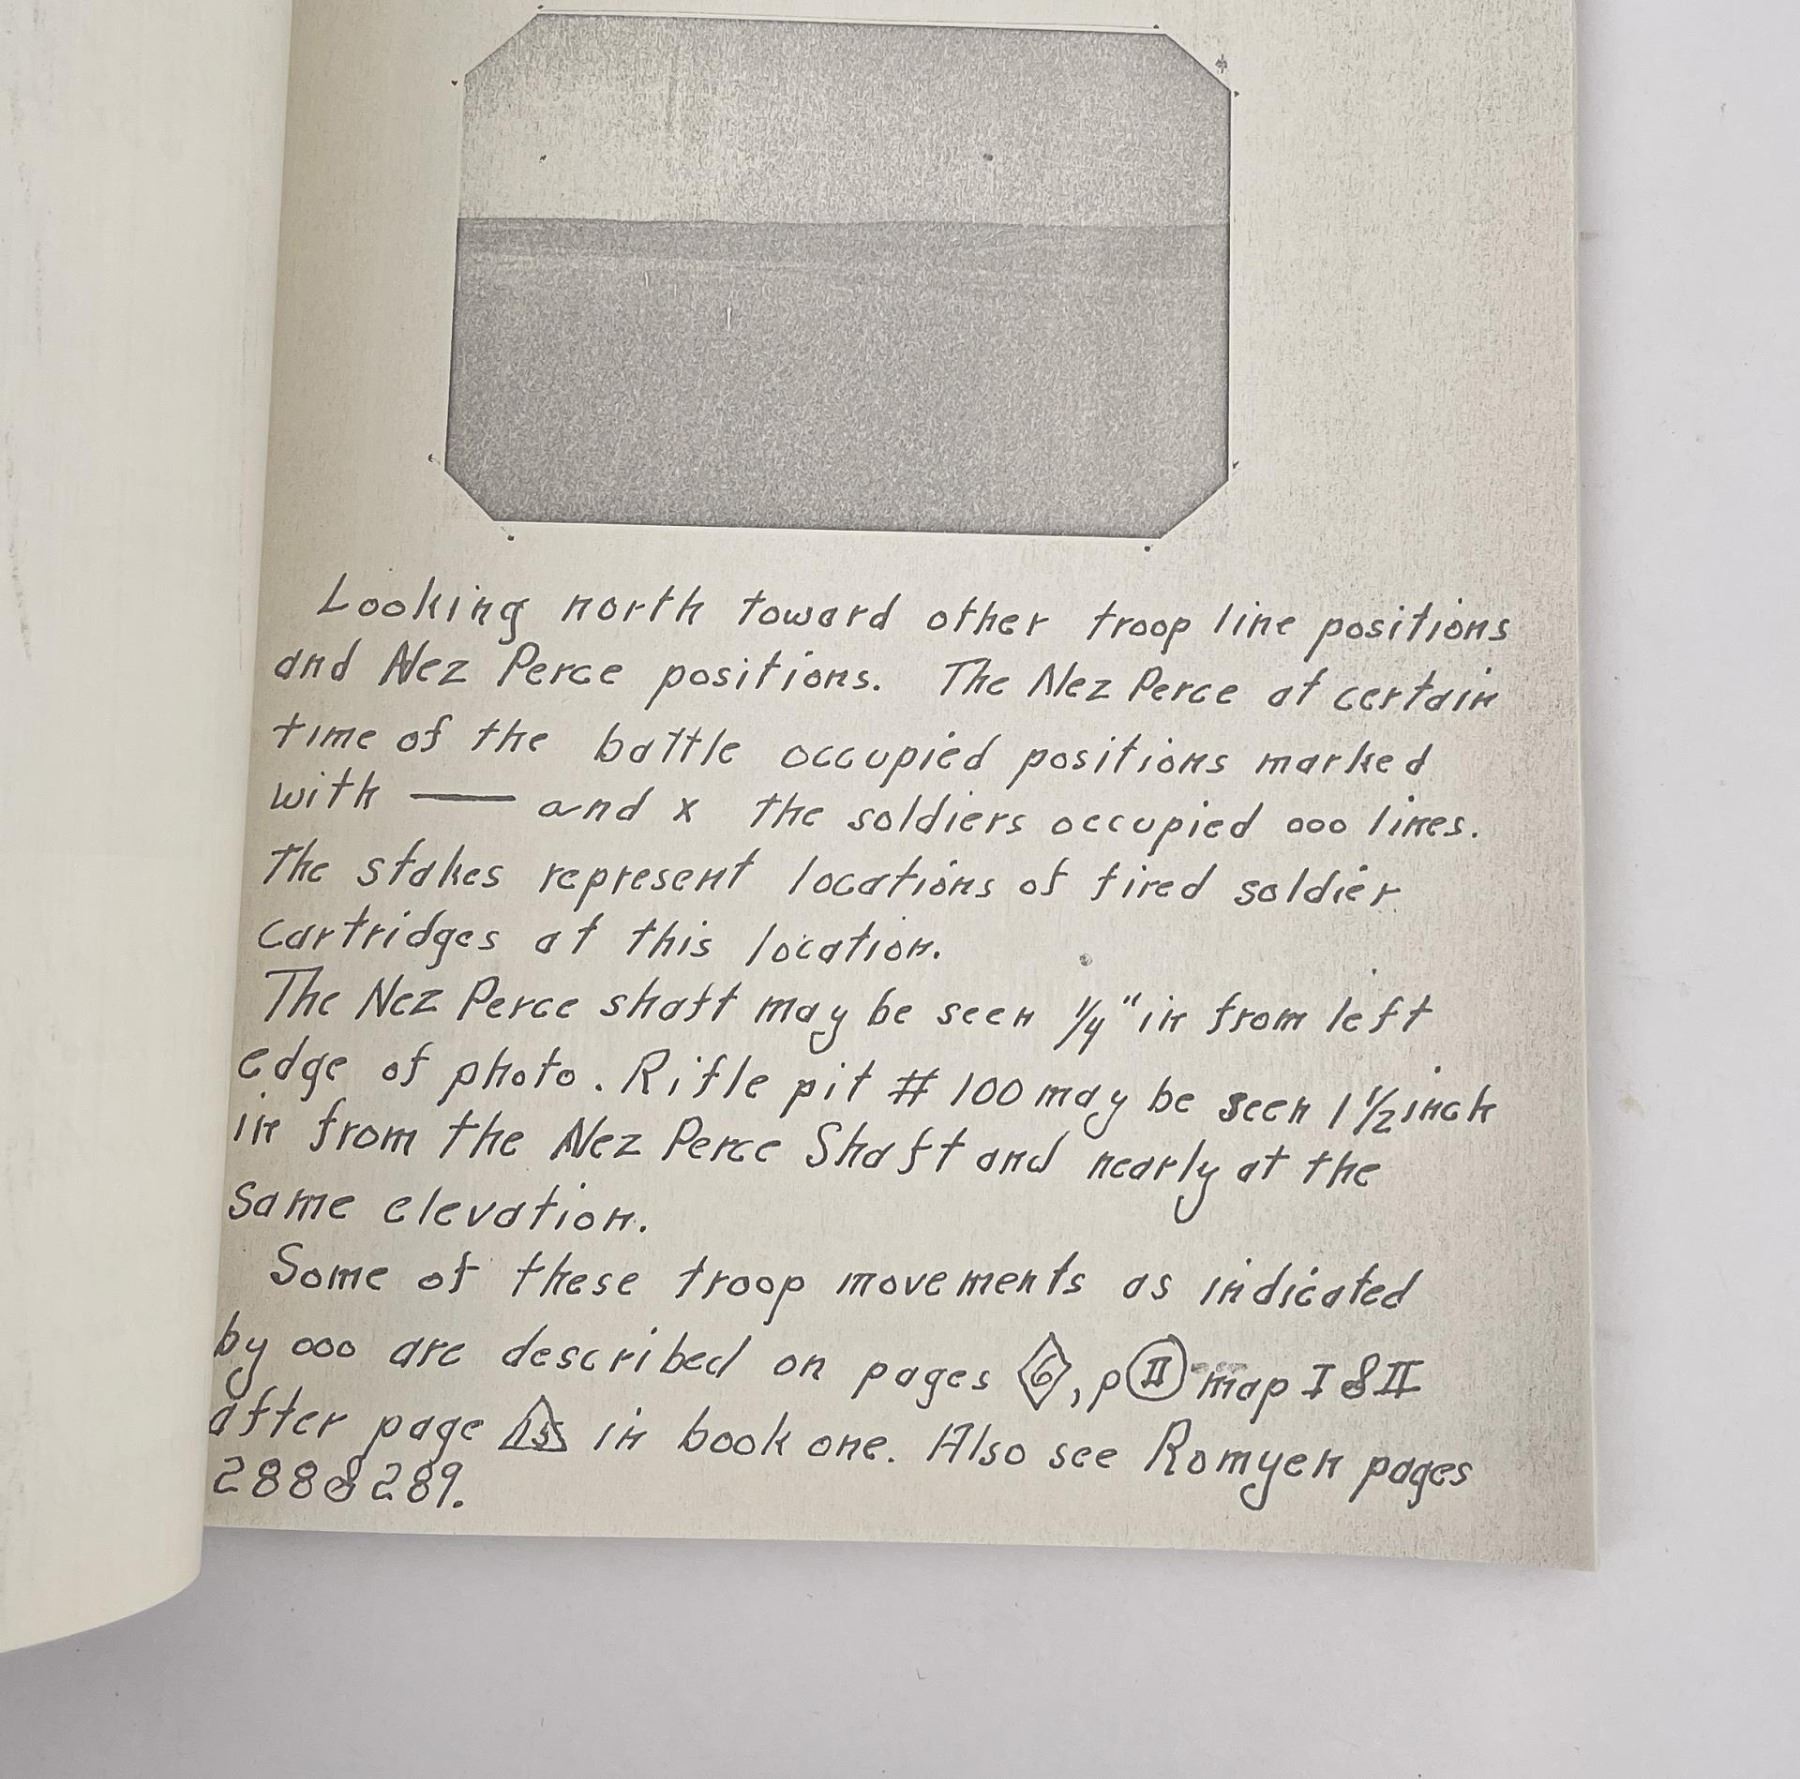 Looking north toward other troop line positions
and Nez Perce positions. The Nez Perce at certain
time of the battle occupied positions marked
with —— and x the soldiers occupied ooo lines.
The stakes represent locations of fired soldier
cartridges at this location.
The Nez Perce shaft may be seen 1/4" in from left
edge of photo. Rifle pit # 100 may be seen 1 1/2 inch
in from the Nez Perce Shaft and nearly at the
same elevation.
Some of these troop movements as indicated
by ooo are described on pages 6, p II map I & II
after page 15 in book one. Also see Romyen pages
288 & 289.